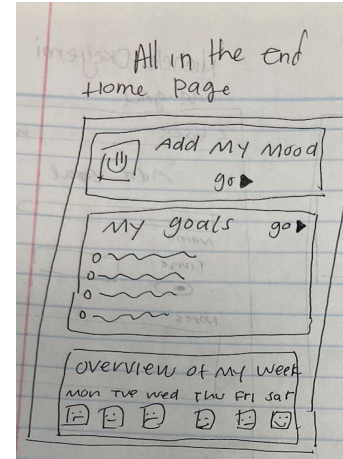 All in the End
Home Page
Add My Mood
go
My goals
go
overview of My week
Mon Tue wed Thu Fri sat